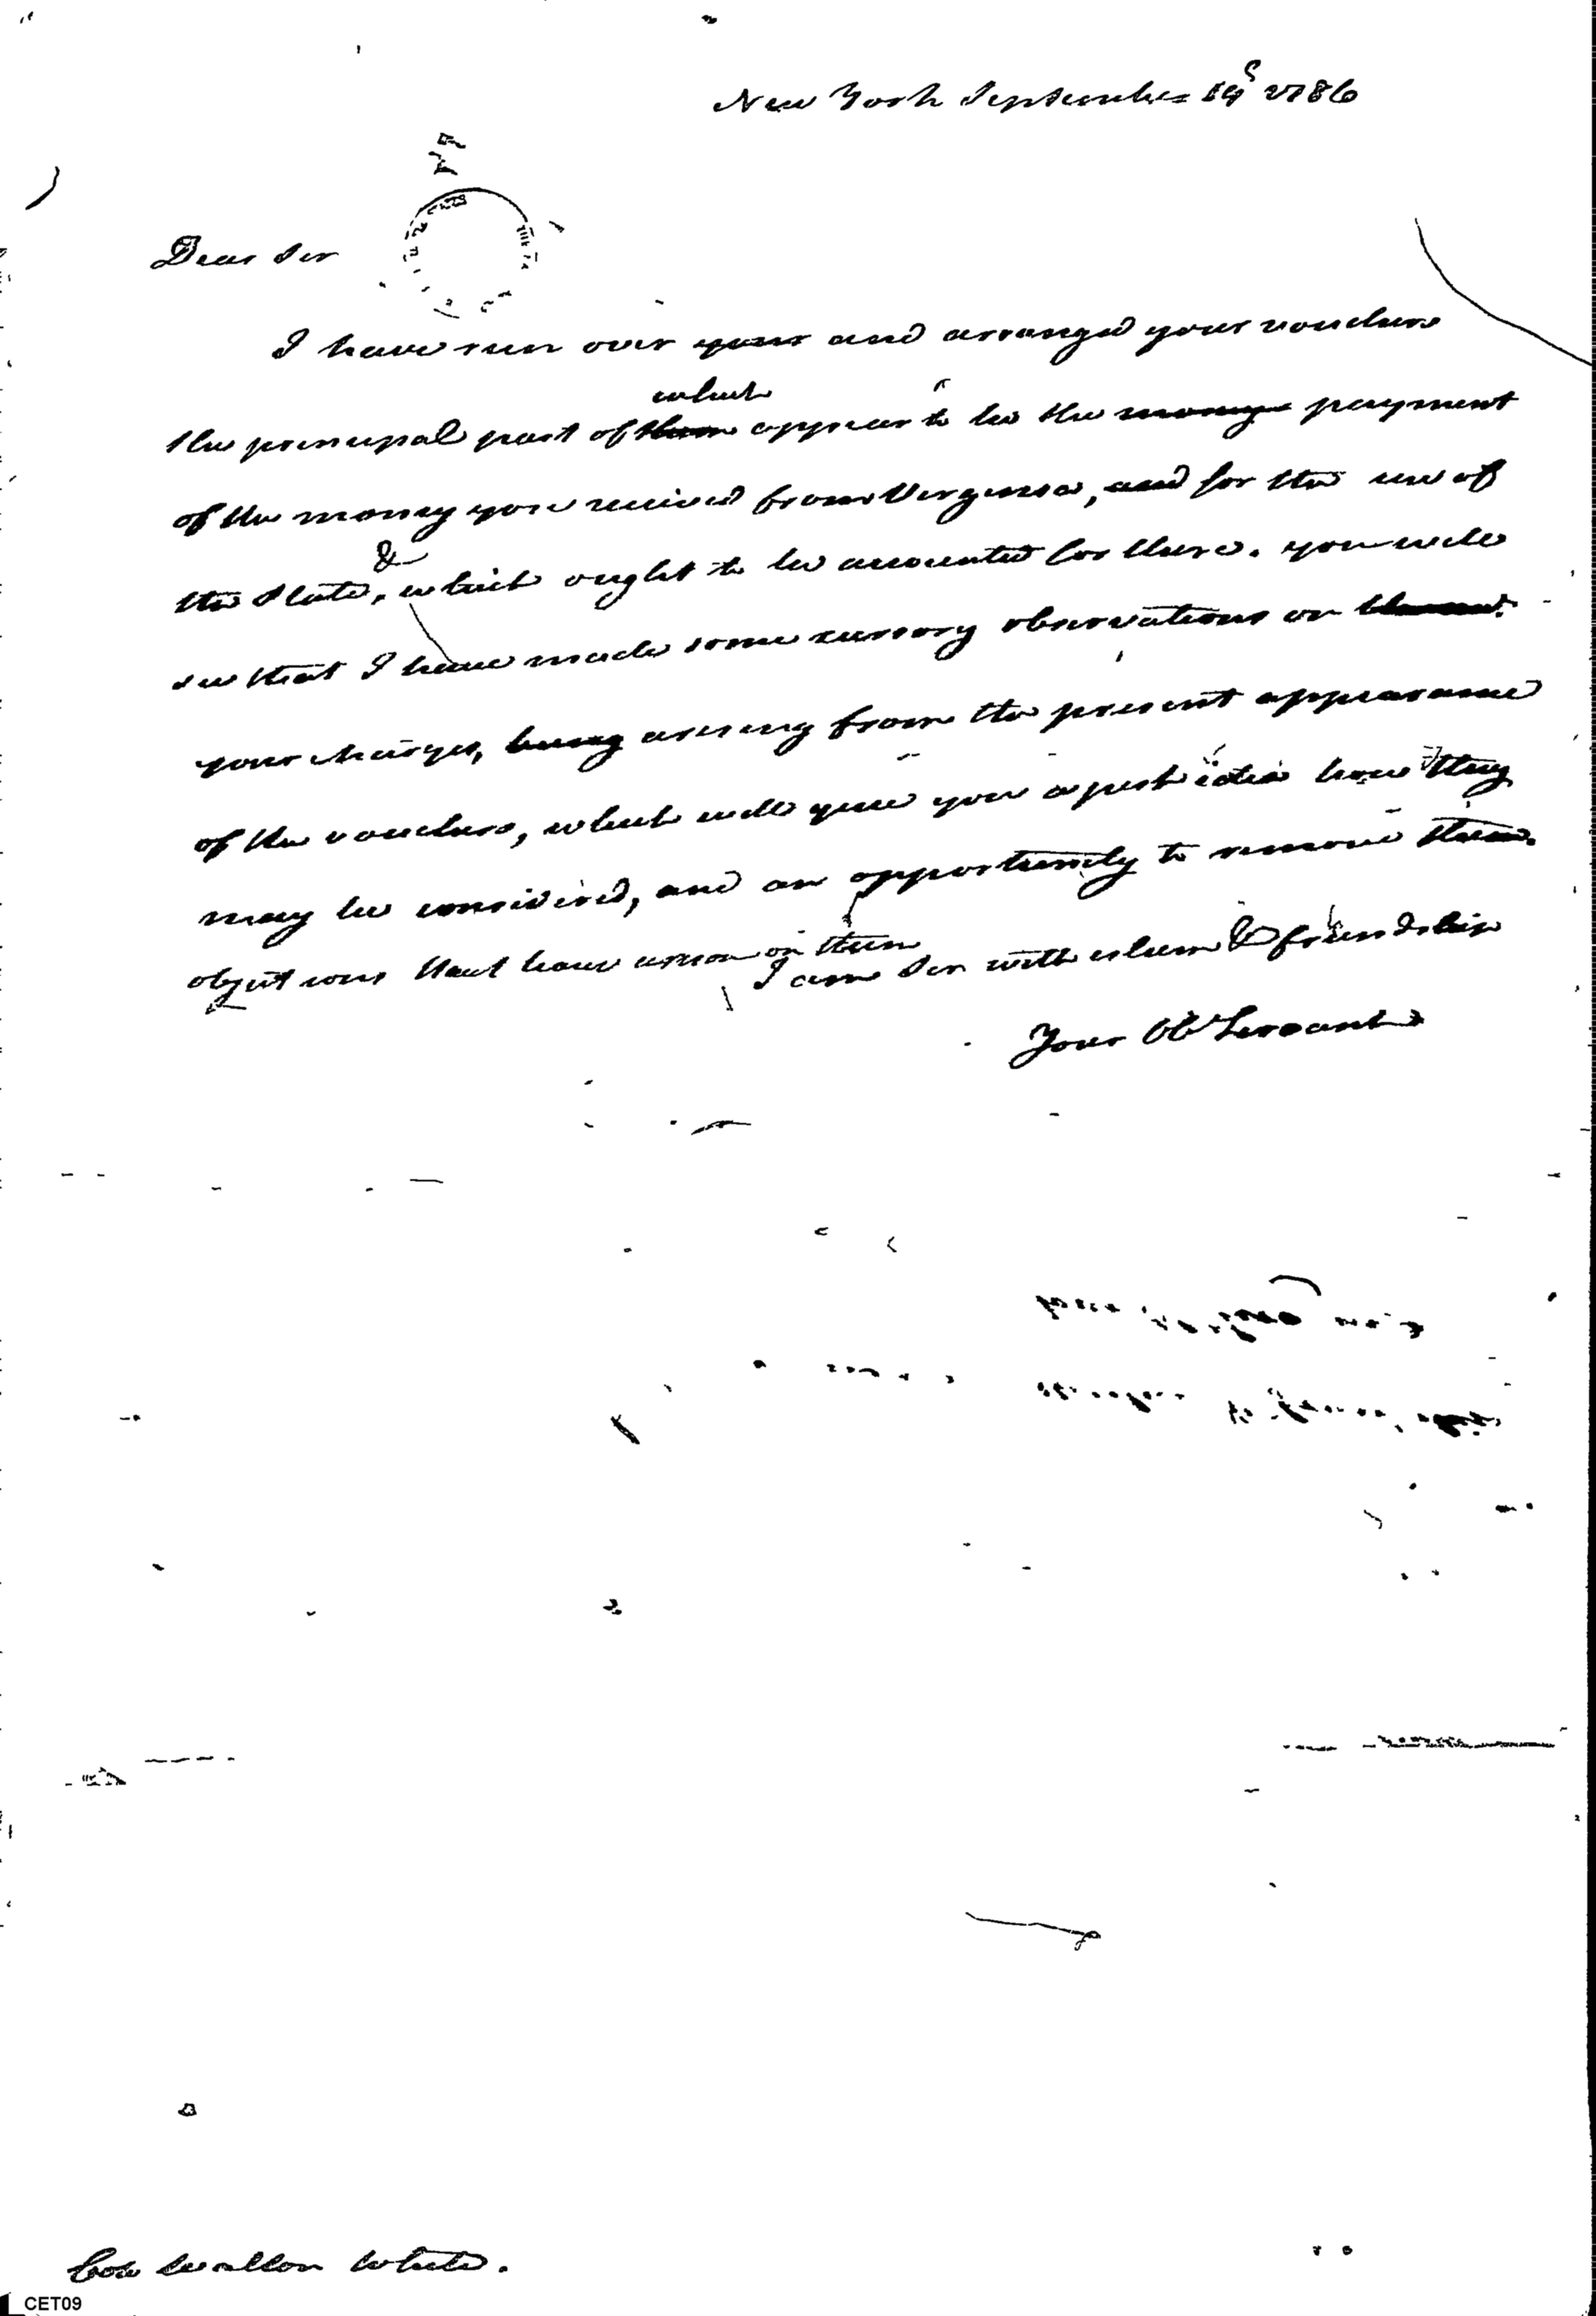 New York September 19 1786
Dear Sir
I have run over your and arranged your vouchers
which
the principal part of them appear to be the money payment
of the money you recieved from Virginia, and for the use of
&
the State, which ought to be accounted for there. you will
see that I have made some cursory observations on
your charges, being arising from the present appearance
of the vouchers, which will give you a just idea how they
may be considered, and an opportunity to remove these
objections that have arisen on them
I am Sir with esteem & friendship
Your Ob Servant
Col Walton White.
CET09